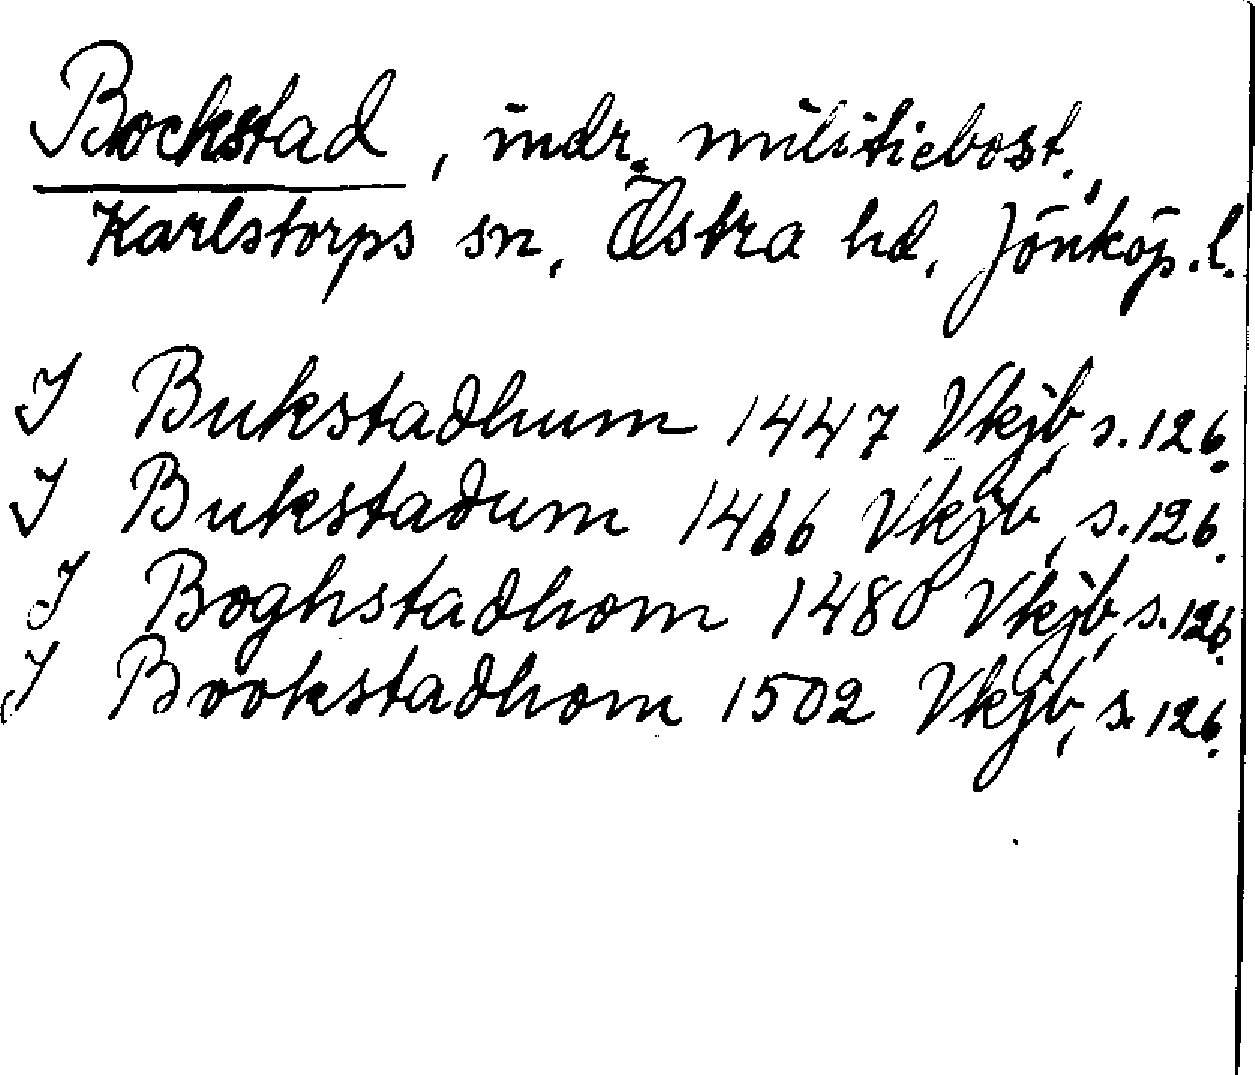 Bockstad, indr. militiebost.,
Karlstorps sn, Östra hd, Jönköp. l.
I Bukstadhum 1447 Vkjb, s. 126.
I Bukstadum 1466 Vkjb, s. 126.
I Boghstadhom 1480 Vkjb, s. 126.
I Bookstadhom 1502 Vkjb, s. 126.